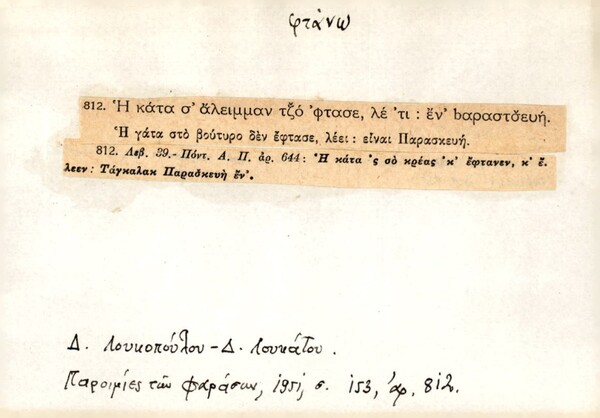 φτάνω
812. Ἡ κάτα σ' ἄλειμμαν τζ̌ό 'φτασε, λέ 'τι : ἔν' bαραστσ̌ευή.
Ἡ γάτα στὸ βούτυρο δὲν ἔφτασε, λέει : εἶναι Παρασκευή.
812. Λεβ. 39.- Πόντ. Α. Π. ἀρ. 644 : Ἡ κάτα 'ς σὸ κρέας 'κ' ἔφτανεν, κ' ἔ-
λεεν : Τάγκαλακ Παραδκευὴ ἔν'.
Δ. Λουκοπούλου - Δ. Λουκάτου.
Παροιμίες τῶν Φαράσων, 1951, σ. 153, ἀρ. 812.